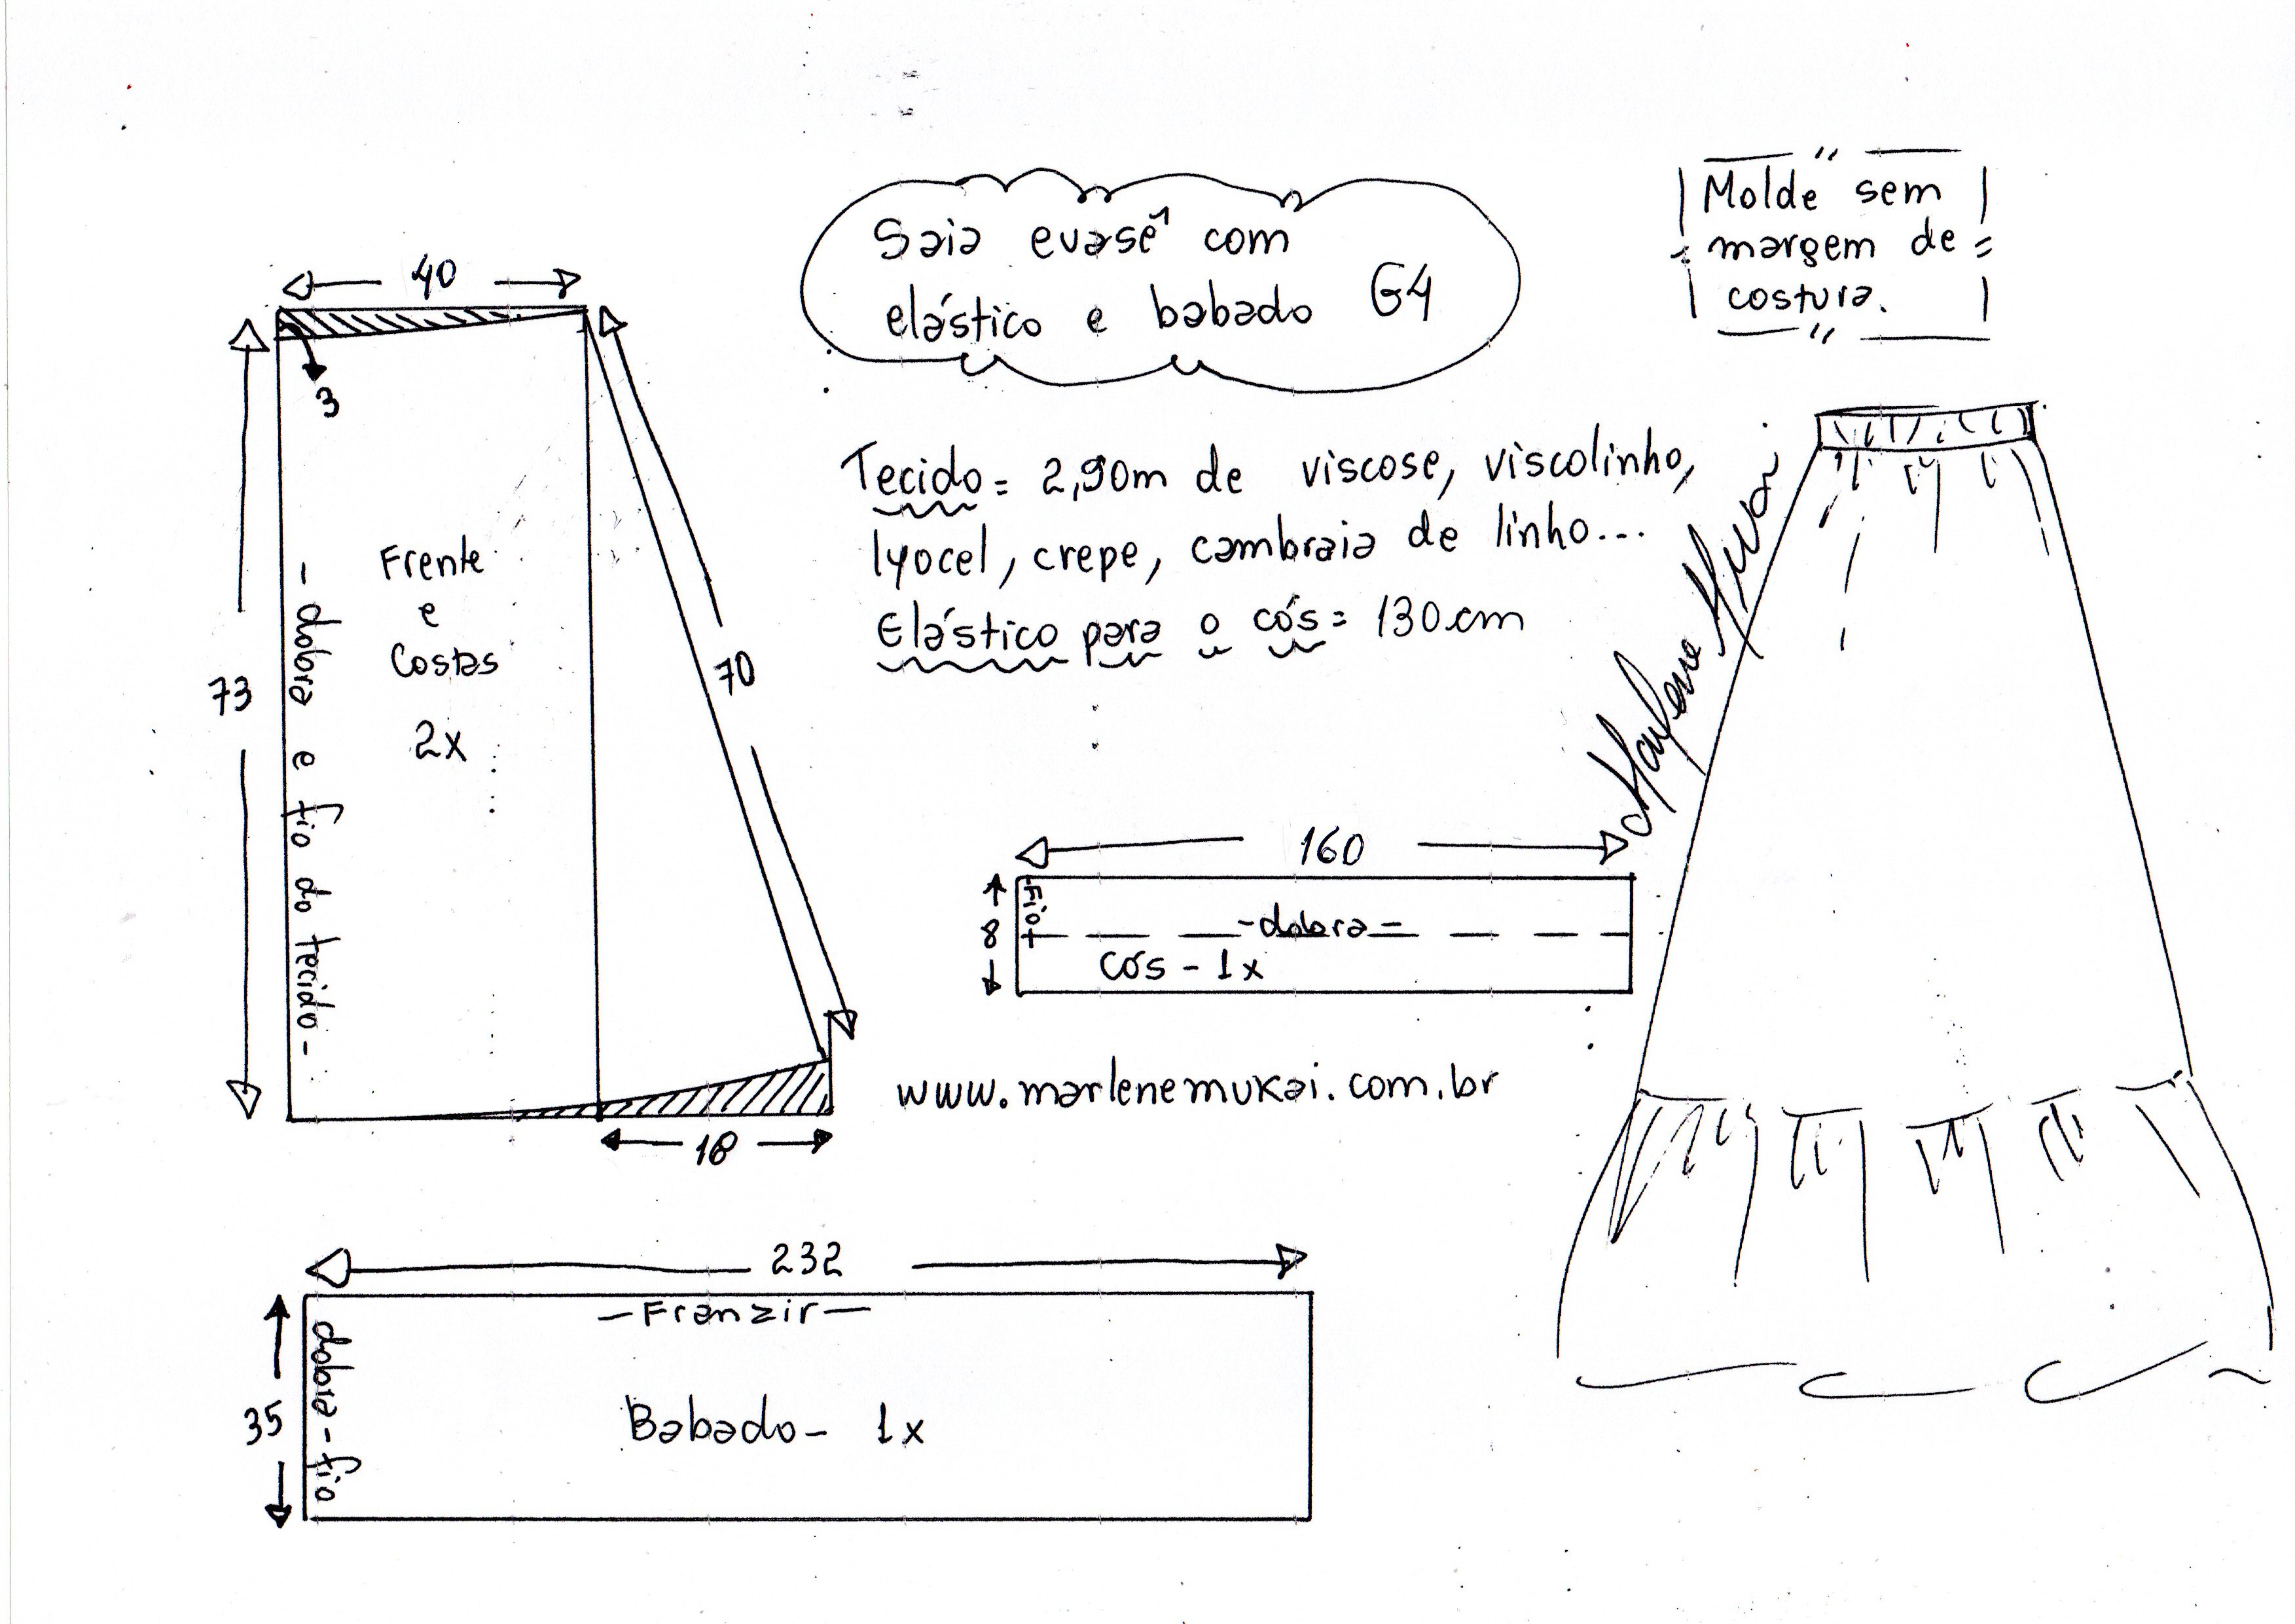 Saia evasê com
elástico e babado G4
Molde sem
margem de
costura.
40
3
73
- dobra e fio do tecido -
Frente
e
Costas
2x
70
18
Tecido = 2,90m de viscose, viscolinho,
lyocel, crepe, cambraia de linho...
Elástico para o cós = 130 cm
Marlene Mukai
160
8
Fio
- dobra =
cós - 1x
www.marlenemukai.com.br
232
- Franzir -
35
dobra - fio
Babado - 1x